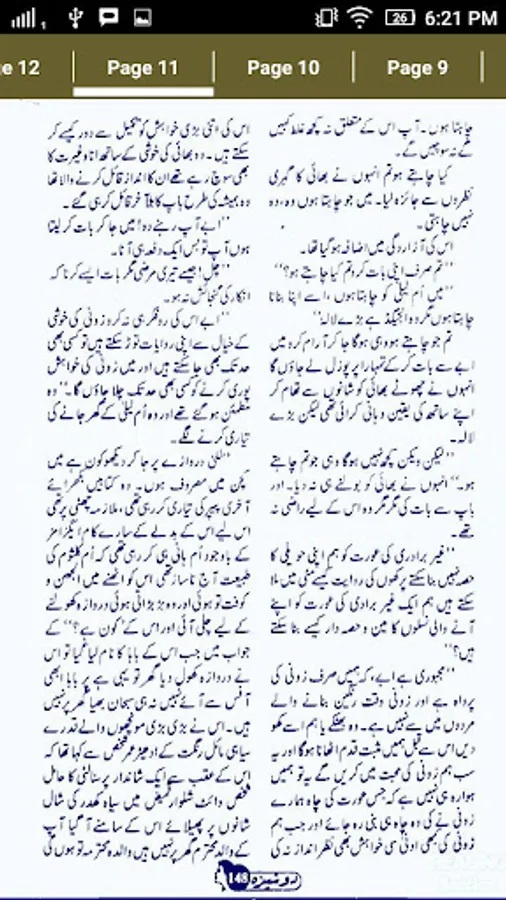 6:21 PM
26
1
e 12
Page 11
Page 10
Page 9
چاہتا ہوں۔ آپ اس کے متعلق نہ کچھ غلط کہیں
گے نہ سوچیں گے۔
کیا چاہتے ہو تم انہوں نے بھائی کا گہری
نظروں سے جائزہ لیا۔ میں جو چاہتا ہوں وہ، وہ
نہیں چاہتی۔
اس کی آزاردگی میں اضافہ ہو گیا تھا۔
''تم صرف اپنی بات کرو تم کیا چاہتے ہو؟''
''میں اُم لیلیٰ کو چاہتا ہوں، اسے اپنا بنانا
چاہتا ہوں مگر وہ انگیجڈ ہے بڑے لالہ!''
تم جو چاہتے ہو وہی ہوگا جا کر آرام کرو میں
ابے سے بات کر کے تمہارا پرپوزل لے جاؤں گا
انہوں نے چھوٹے بھائی کو شانوں سے تھام کر
اپنے ساتھ کی یقین دہانی کرائی تھی لیکن بڑے
لالہ۔
''لیکن ویکن کچھ نہیں ہوگا وہی جو تم چاہتے
ہو۔'' انہوں نے بھائی کو بولنے ہی نہ دیا۔ اور
باپ سے بات کی مگر مگر وہ اس کے لیے راضی نہ
تھے۔
''غیر برادری کی عورت کو ہم اپنی حویلی کا
حصہ نہیں بنا سکتے پرکھوں کی روایت کیسے مٹی میں ملا
سکتے ہیں ہم ایک غیر برادی کی عورت کو اپنے
آنے والی نسلوں کا مین و حصہ دار کیسے بنا سکتے
ہیں؟''
''مجبوری ہے ابے، کہ ہمیں صرف زونی کی
پرواہ ہے اور زونی وقت رنگین بنانے والے
مردوں میں سے نہیں ہے۔ وہ بھٹکے یا ہم اسے کھو
دیں اس سے قبل ہمیں مثبت قدم اٹھانا ہوگا اور یہ
سب ہم زونی کی محبت میں کریں گے یہ تو ہمیں
گوارہ ہی نہیں ہے کہ جس عورت کی چاہ ہمارے
زونی نے کی وہ چاہ ہی بنی رہ جائے اور جب ہم
زونی کی بھی ادنیٰ سی خواہش بھی نظر انداز نہ کی
اس کی اتنی بڑی خواہش کو تکمیل سے دور کیسے کر
سکتے ہیں۔ وہ بھائی کی خوشی کے ساتھ انا و غیرت کا
بھی سوچ رہے تھے ان کا انداز قائل کرنے والا تھا
وہ ہمیشہ کی طرح باپ کا بلآخر قائل کر ہی گئے۔
''ابے آپ رہنے دو! میں جا کر بات کر لیتا
ہوں آپ تو بس ایک دفعہ ہی آنا۔
''چل! جیسے تیری مرضی مگر بات ایسے کرنا کہ
انکار کی گنجائش نہ ہو۔
''ابے اس کی رہ فکر ہی نہ کرو زونی کی خوشی
کے خیال سے اپنی روایات توڑ سکتے ہیں تو کسی بھی
حد تک بھی جا سکتے ہیں اور میں زونی کی خواہش
پوری کرنے کو کسی بھی حد تک چلا جاؤں گا۔'' وہ
مطمئن ہو گئے تھے اور وہ اُم لیلیٰ کے گھر جانے کی
تیاری کرنے لگے۔
''للیٰ دروازے پر جا کر دیکھو کون ہے میں
کچن میں مصروف ہوں۔ وہ کتابیں بکھرائے
آخری پیپر کی تیاری کر رہی تھی، ملازمہ چھٹی پر تھی
اس لیے اس کے بدلے کے سارے کام ایگزامز
کے باوجود اُم ہانی ہی کر رہی تھی کہ اُم کلثوم کی
طبیعت آج ناساز تھی اس کو اٹھنے میں الجھن و
کوفت تو ہوئی اور وہ بڑبڑاتی ہوئی دروازہ کھولنے
کے لیے چلی آئی اور اس کے ''کون ہے؟'' کے
جواب میں جب اس کے بابا کا نام لیا گیا تو اس
نے دروازہ کھول دیا گھر تو یہی ہے پر بابا ابھی
آفس سے آئے نہیں نہ ہی سبحان بھیا گھر پر نہیں
ہیں۔ اس نے بڑی بڑی مونچھوں والے قدرے
سیاہی مائل رنگت کے ادھیڑ عمر شخص سے کہا تھا کہ
اس کے عقب سے ایک شاندار پرسنالٹی کا حامل
شخص وائٹ شلوار قمیض میں سیاہ کھدر کی شال
شانوں پر پھیلائے اس کے سامنے آ گیا آپ
کے والد محترم گھر پر نہیں ہیں والدہ محترمہ تو ہوں گی
دوشیزہ 148